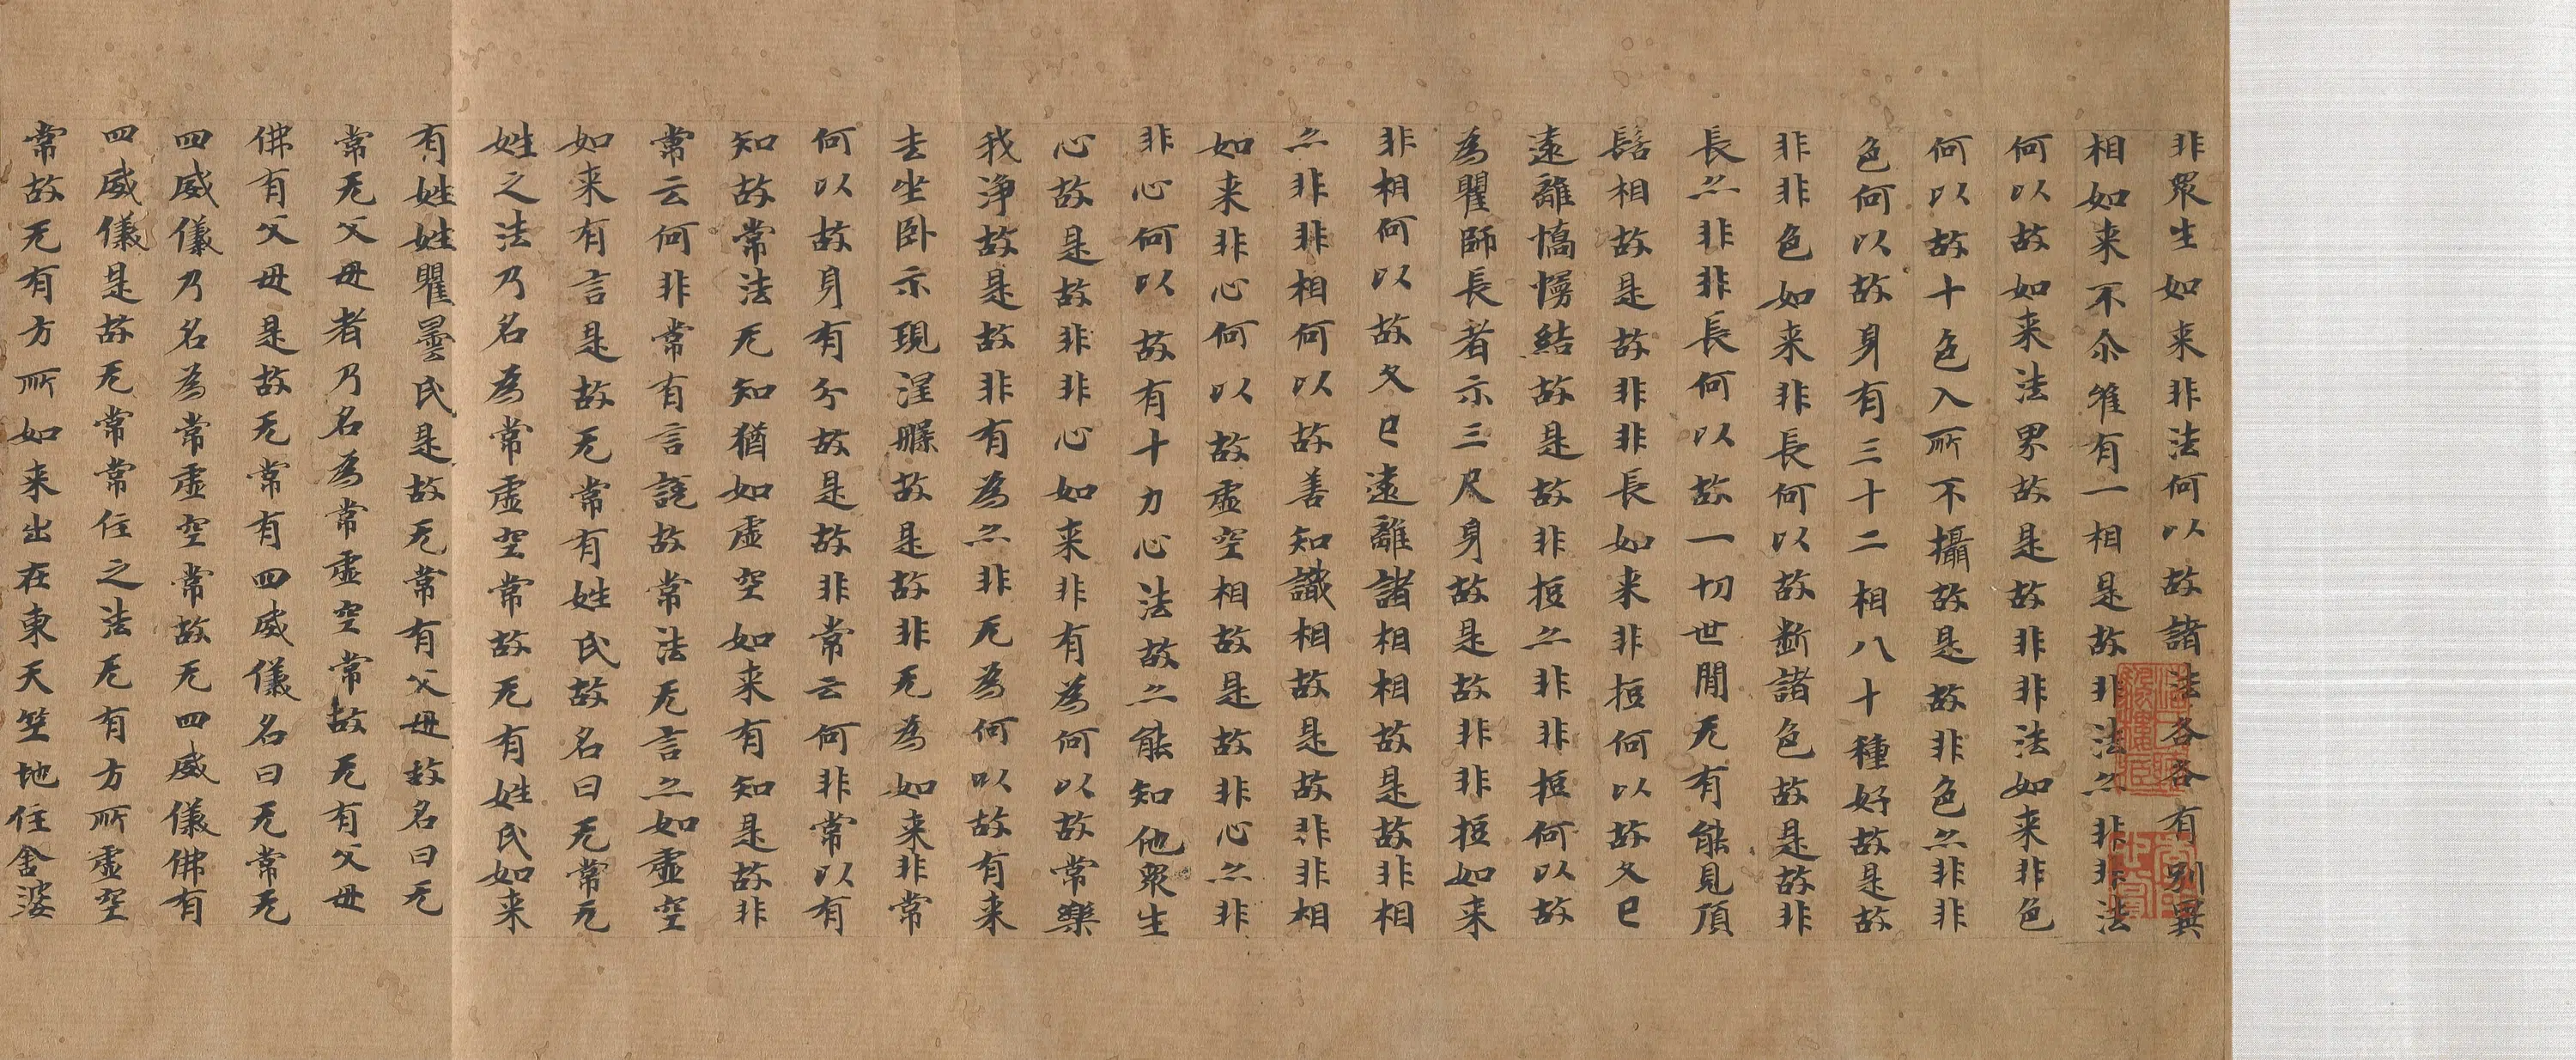 非眾生如来非法何以故諸法各各有別異
相如来不尒唯有一相是故非法亦非非法
何以故如来法界故是故非非法如来非色
何以故十色入所不攝故是故非色亦非非
色何以故身有三十二相八十種好故是故
非非色如来非長何以故斷諸色故是故非
長亦非非長何以故一切世間无有能見頂
髻相故是故非非長如来非短何以故久已
遠離憍慢結故是故非短亦非非短何以故
為瞿師長者示三尺身故是故非非短如来
非相何以故久已遠離諸相相故是故非相
亦非非相何以故善知識相故是故非非相
如来非心何以故虛空相故是故非心亦非
非心何以故有十力心法故亦能知他眾生
心故是故非非心如来非有為何以故常樂
我淨故是故非有為亦非无為何以故有来
去坐卧示現涅槃故是故非无為如来非常
何以故身有分故是故非常云何非常以有
知故常法无知猶如虛空如来有知是故非
常云何非常有言說故常法无言亦如虛空
如来有言是故无常有姓氏故名曰无常无
姓之法乃名為常虛空常故无有姓氏如来
有姓姓瞿曇氏是故无常有父母故名曰无
常无父母者乃名為常虛空常故无有父母
佛有父母是故无常有四威儀名曰无常无
四威儀乃名為常虛空常故无四威儀佛有
四威儀是故无常常住之法无有方所虛空
常故无有方所如来出在東天竺地住舍婆